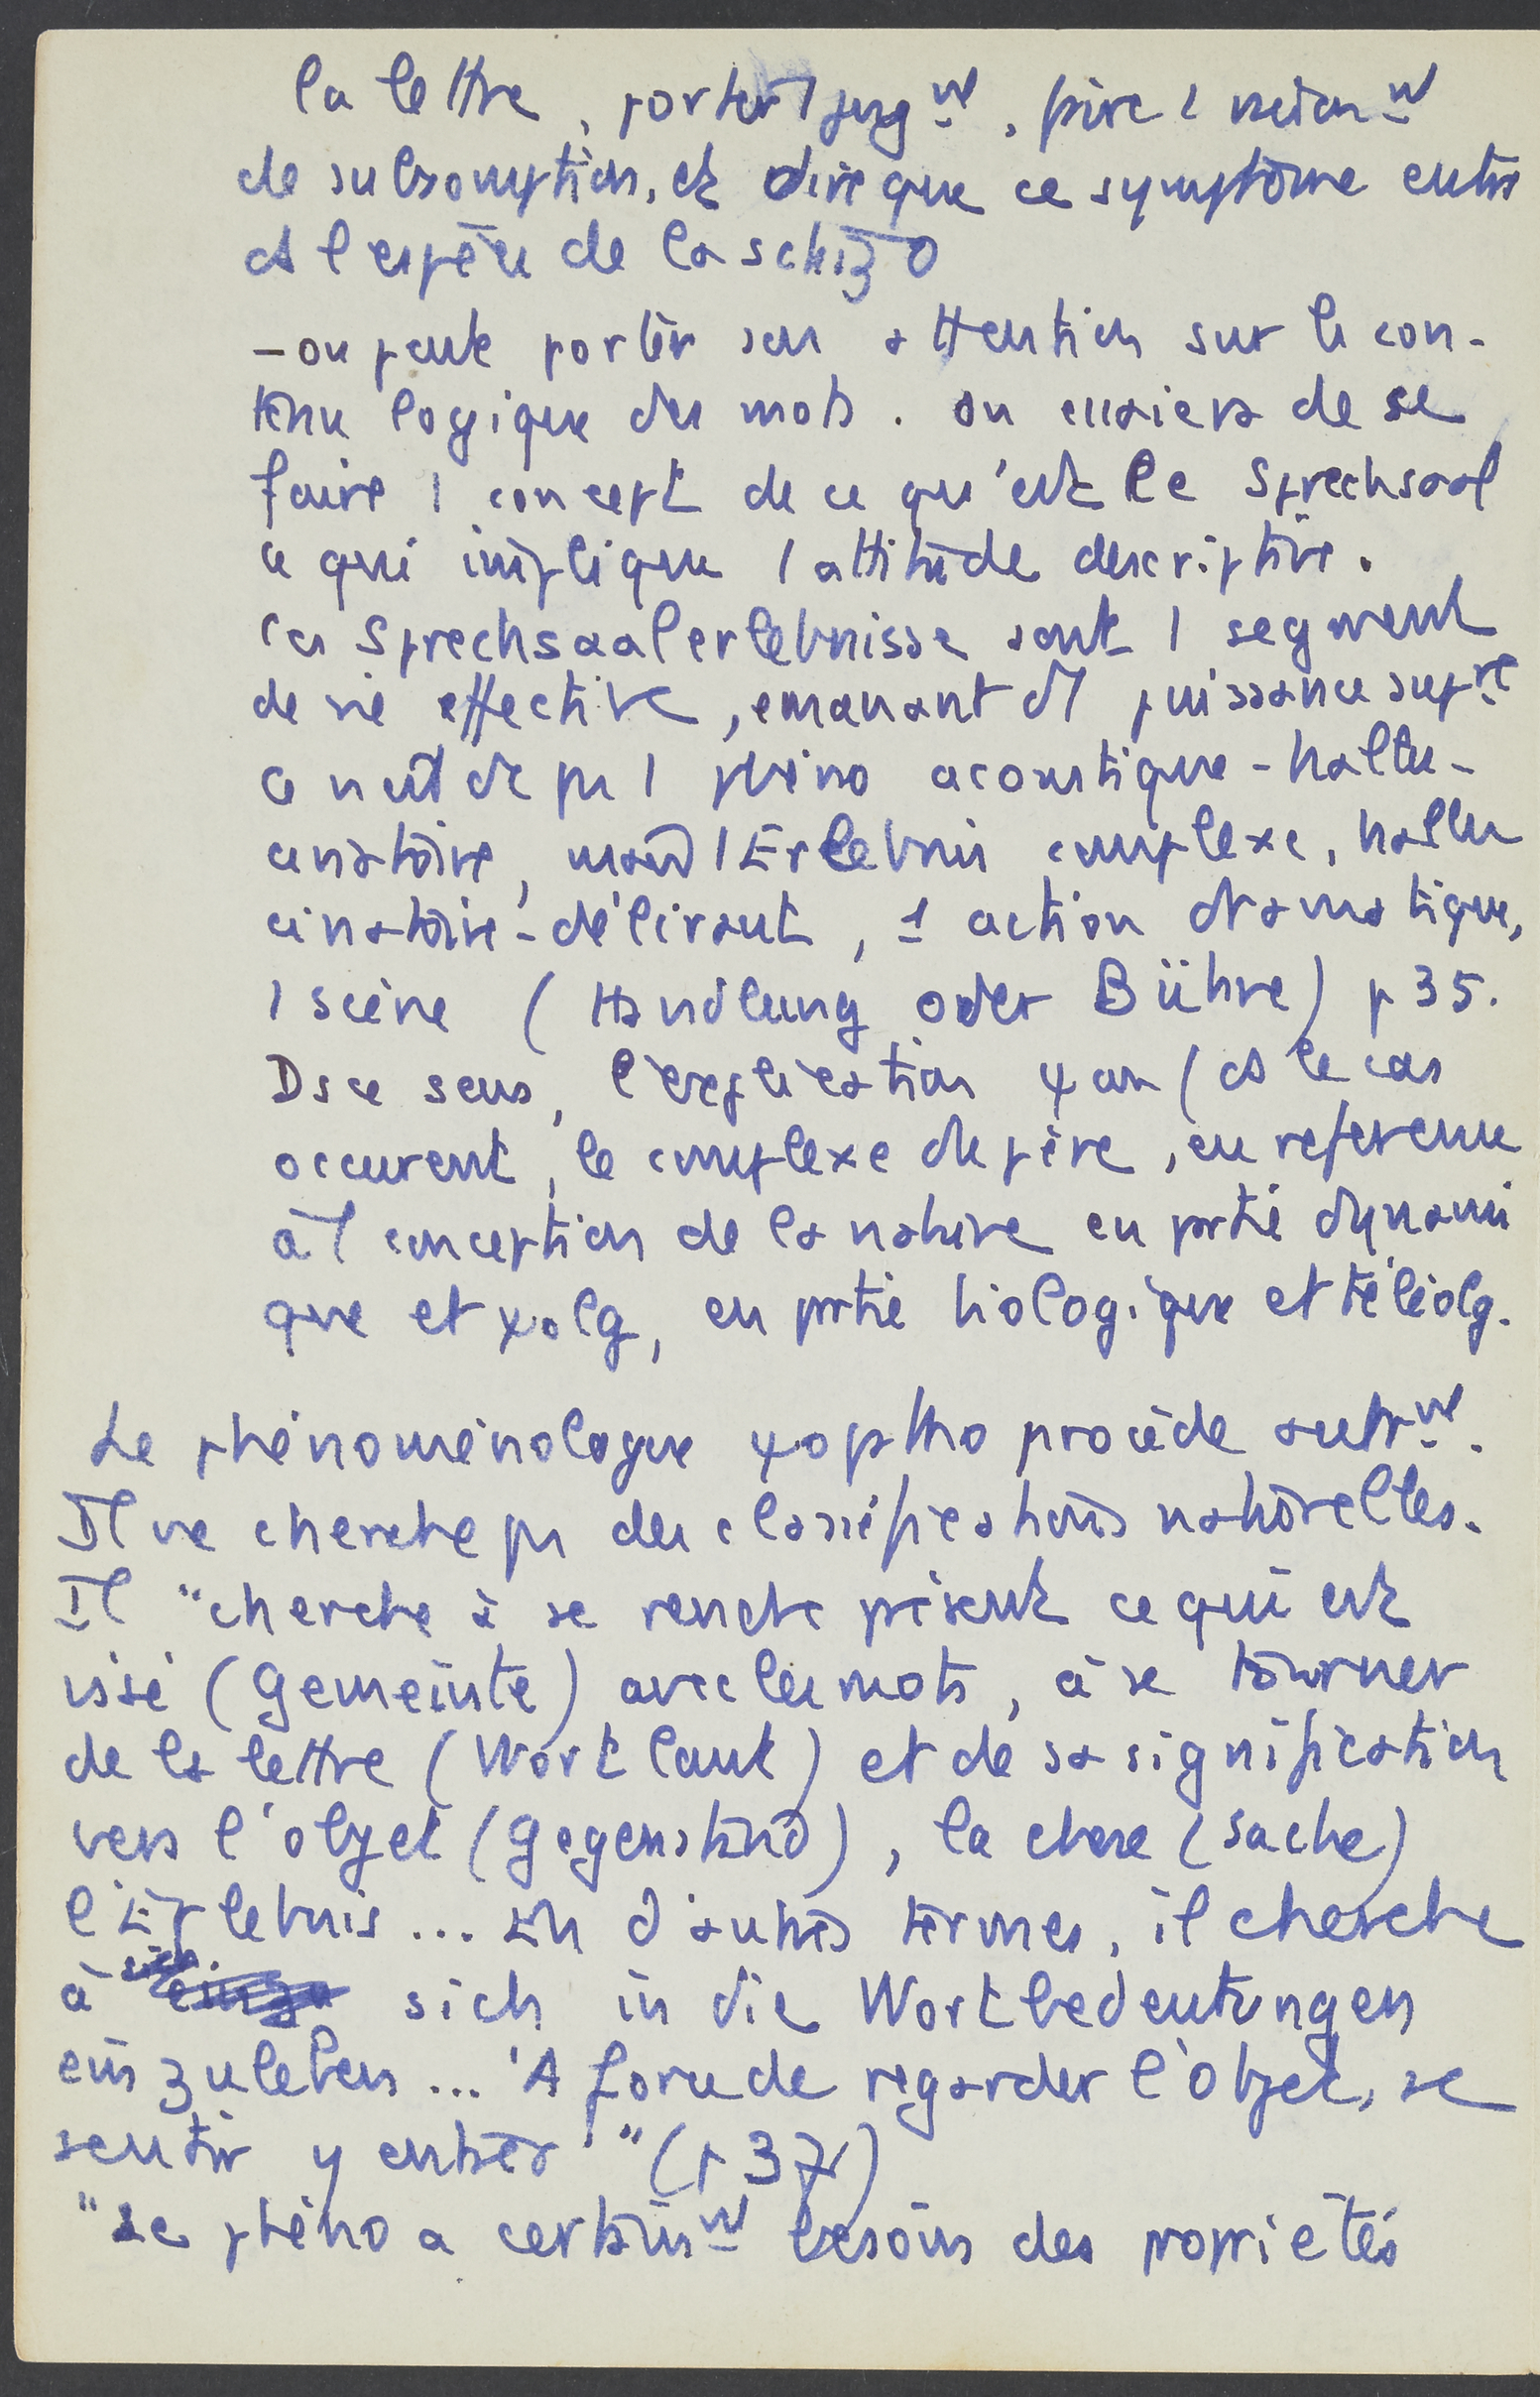 la lettre, porter 1 jugnt, faire 1 raisonnt
de subsomption, et dire que ce symptôme entre
ds l'espèce de la schizo
- on peut porter son attention sur le con-
tenu logique des mots. on essaiera de se
faire 1 concept de ce qu'est le Sprechsaal
ce qui implique 1 attitude descriptive.
ces Sprechsaalerlebnisse sont 1 segment
de vie effective, emanant d'1 puissance supre
ce n'est dc pas 1 phéno acoustique-hallu-
cinatoire, mais 1 Erlebnis complexe, hallu
cinatoire-délirant, 1 action dramatique,
1 scène (Handlung oder Bühne) p 35.
Ds ce sens, l'explication ψan (ds le cas
occurent, le complexe du père, en reference
à 1 conception de la nature en partie dynami
que et ψolg, en partie biologique et téléolg.
Le phénoménologue ψopatho procède autrnt.
Il ne cherche pas des classifications naturelles.
Il "cherche à se rendre présent ce qui est
visé (Gemeinte) avec les mots, à se tourner
de la lettre (Wortlaut) et de sa signification
vers l'objet (Gegenstand), la chose (Sache)
l'Erlebnis... En d'autres termes, il cherche
à sich in die Wortbedeutungen
einzuleben... 'A force de regarder l'objet, se
sentir y entrer'" (p 37)
"Le phéno a certainnt besoin des propriétés